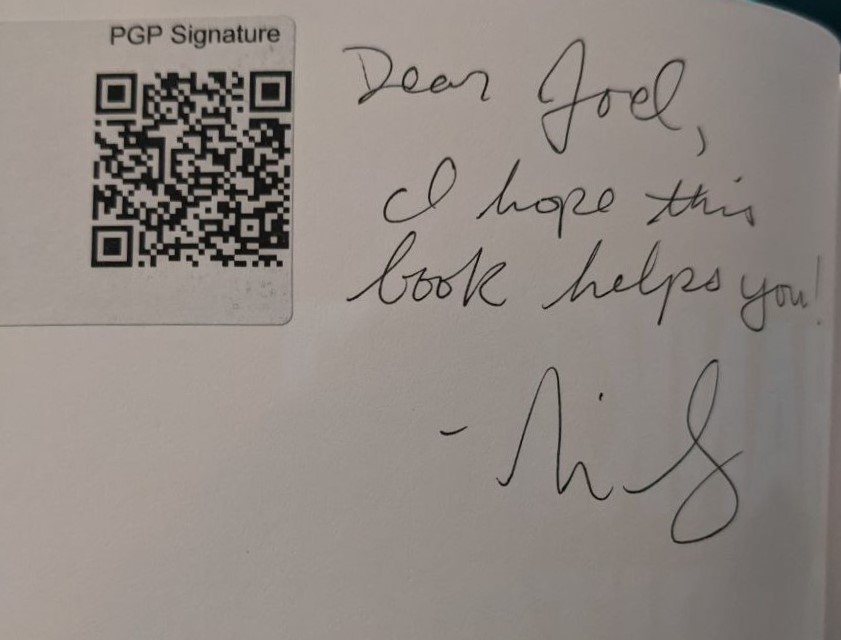 PGP Signature
Dear Joel,
I hope this
book helps you!